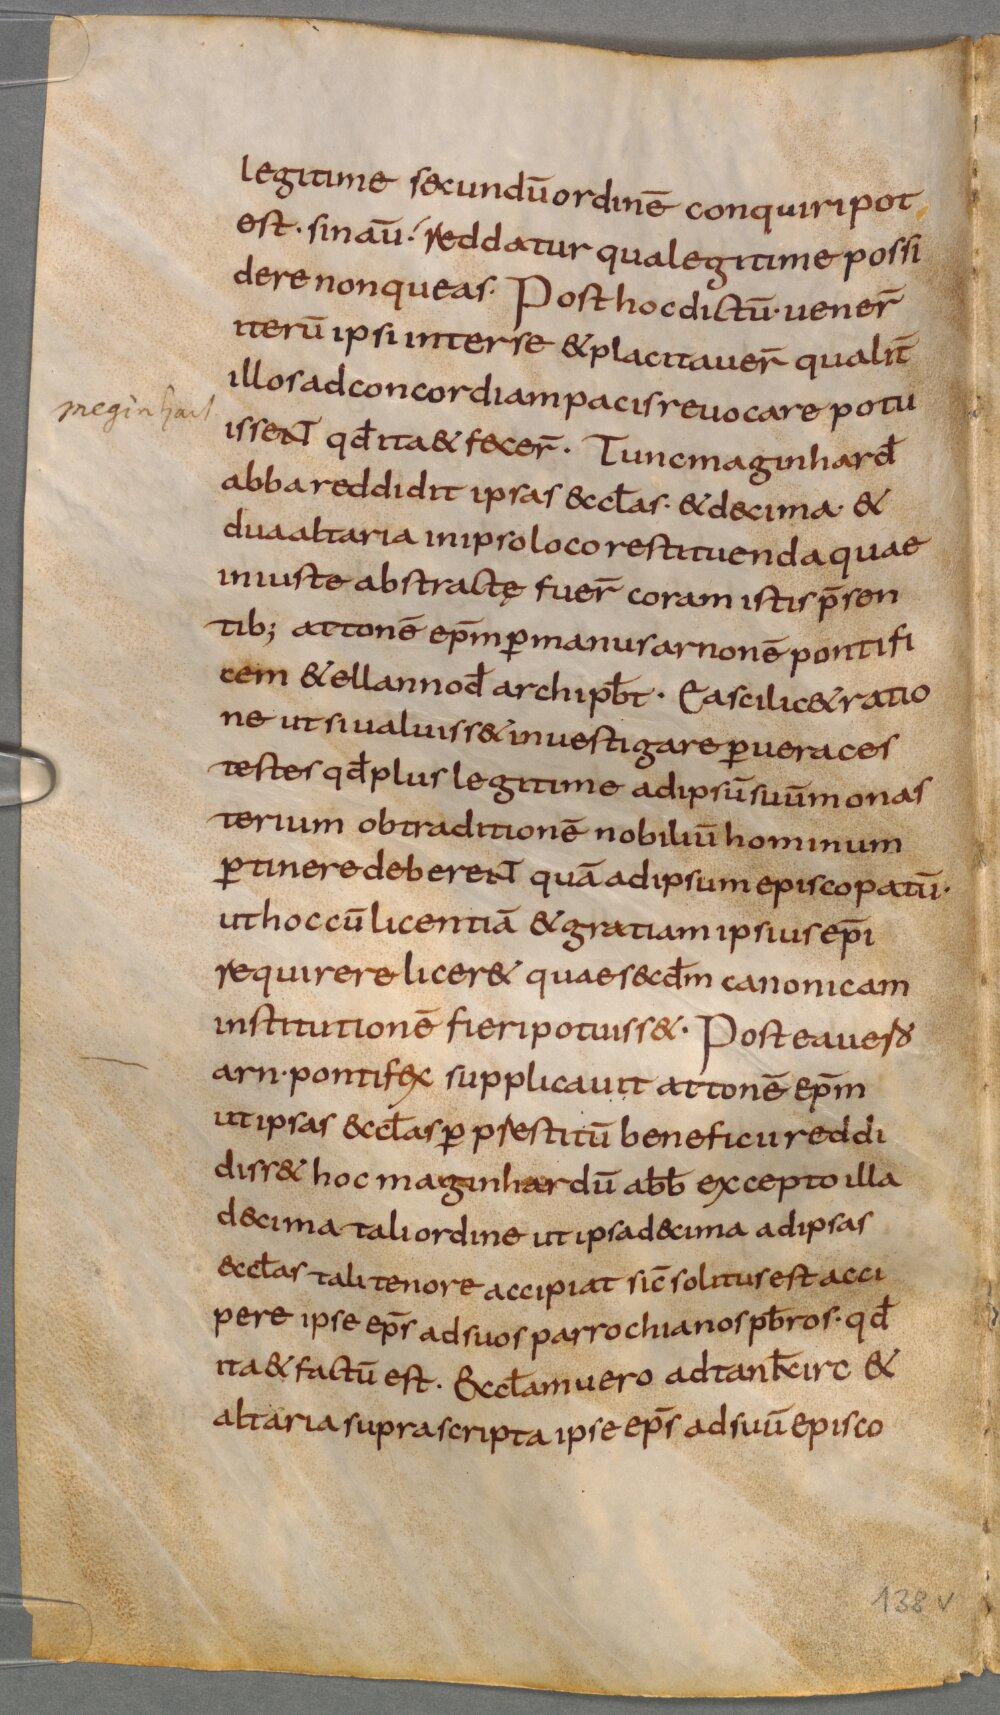 legitime secundū ordinē conquiri pot
est · sin aū · reddatur qua legitime possi
dere non queas · Post hoc dictū · uener̄
iterū ipsi inter se & placitauer̄ qualit̄
illos ad concordiam pacis reuocare potu
meginhart
issent qđ ita & fecer̄ · Tunc maginharđ
abba reddidit ipsas &cct̄as · & decima · &
dua altaria in ipso loco restituenda quae
iniuste abstractę fuer̄ coram istis p̄sen
tib; attonē ep̄m ꝑ manus arnonē pontifi
cem & ellannođ archipb̄t · Ea scilic& ratio
ne ut si ualuiss& inuestigare ꝑ ueraces
testes qđ plus legitime ad ipsū suū monas
terium ob traditionē nobiliū hominum
ꝑtinere deberent quā ad ipsum episcopatū ·
ut hoc cū licentiā & gratiam ipsius ep̄i
requirere licer& quae secđm canonicam
institutionē fieri potuiss& · Post ea uero
arn · pontifex supplicauit attonē ep̄m
ut ipsas &cct̄as ꝑ psestitū beneficii reddi
diss& hoc maginhardū ab̄b excepto illa
decima tali ordine ut ipsa decima ad ipsas
&cct̄as tali tenore accipiat sic̄ solitus est acci
pere ipse ep̄s ad suos parrochianos pb̄ros · qđ
ita & factū est · &cct̄am uero ad tank̄irc &
altaria suprascripta ipse ep̄s ad suū episco
138 v